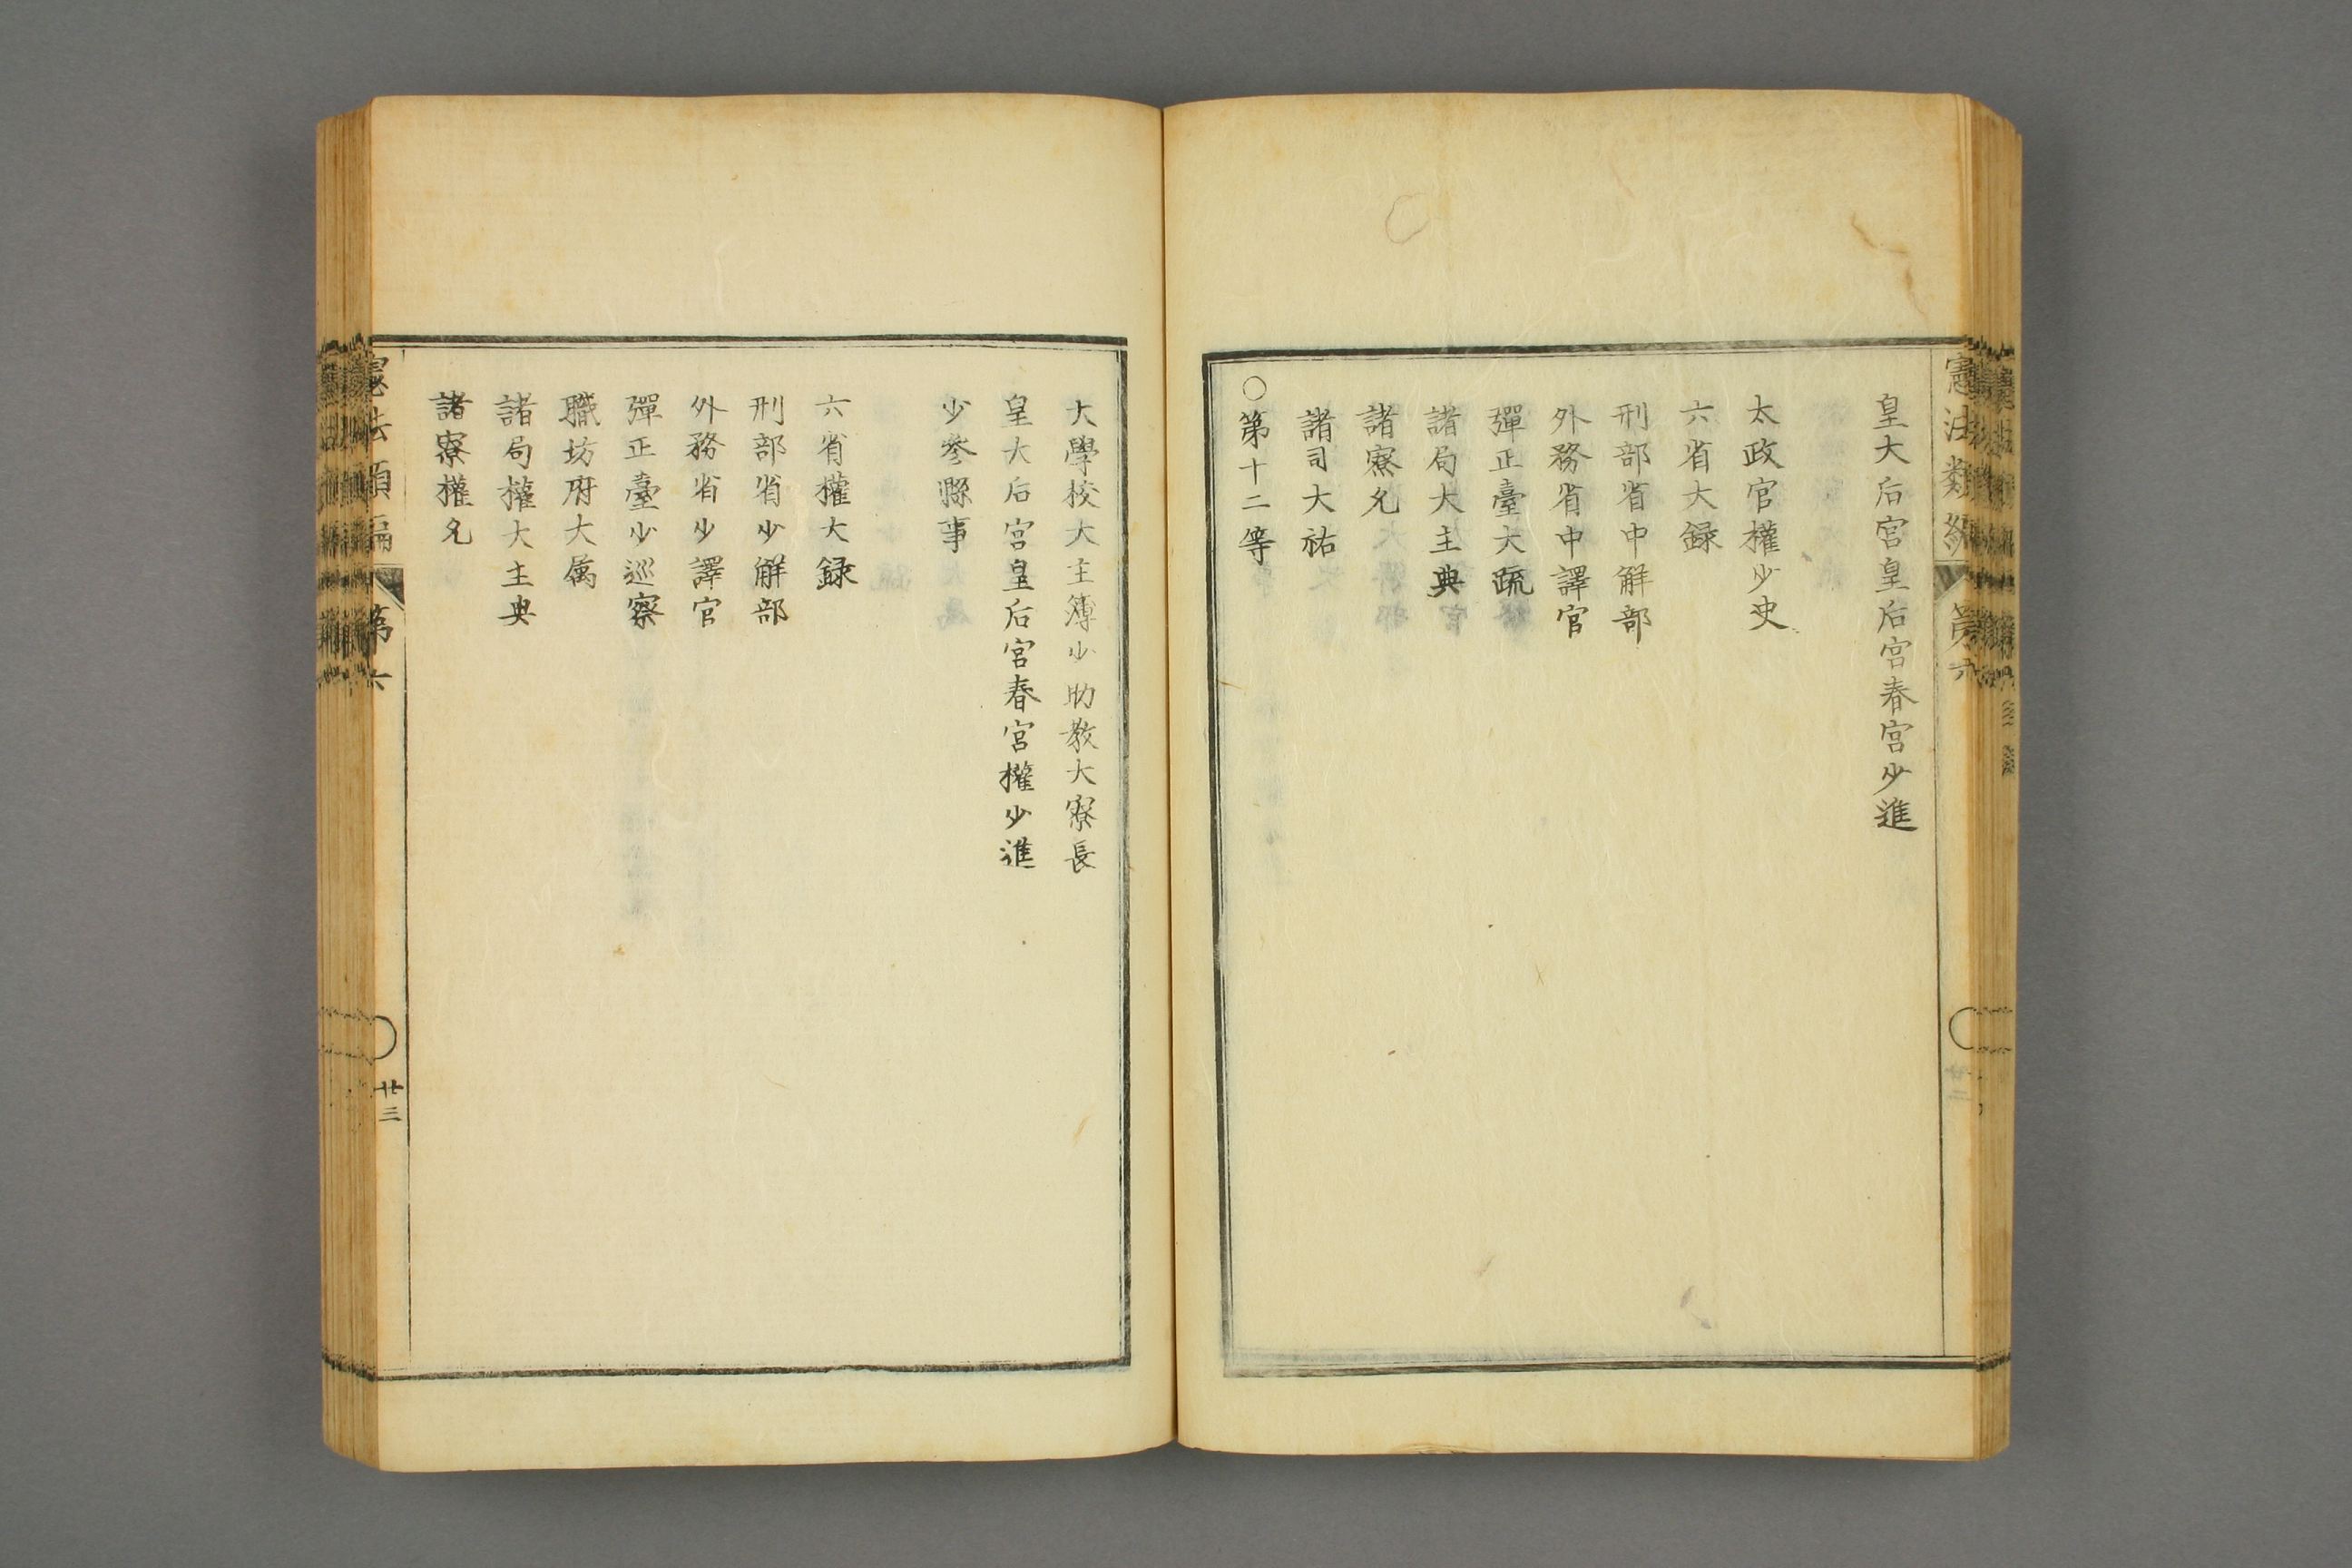 皇大后宮皇后宮春宮少進
太政官權少史
六省大録
刑部省中解部
外務省中譯官
彈正臺大疏
諸局大主典
諸寮允
諸司大祐
○第十二等
大學校大主簿少助教大寮長
皇大后宮皇后宮春宮權少進
少參縣事
六省權大録
刑部省少解部
外務省少譯官
彈正臺少巡察
職坊府大属
諸局權大主典
諸寮權允
憲法類編
第六
廿三